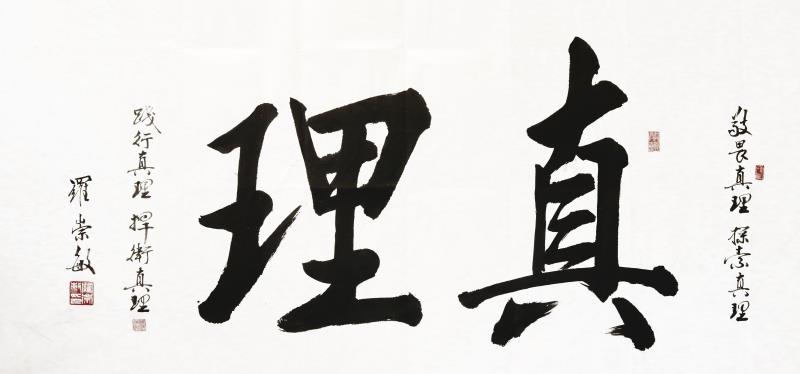 敬畏真理 探索真理
真理
践行真理 捍衛真理
羅崇敏